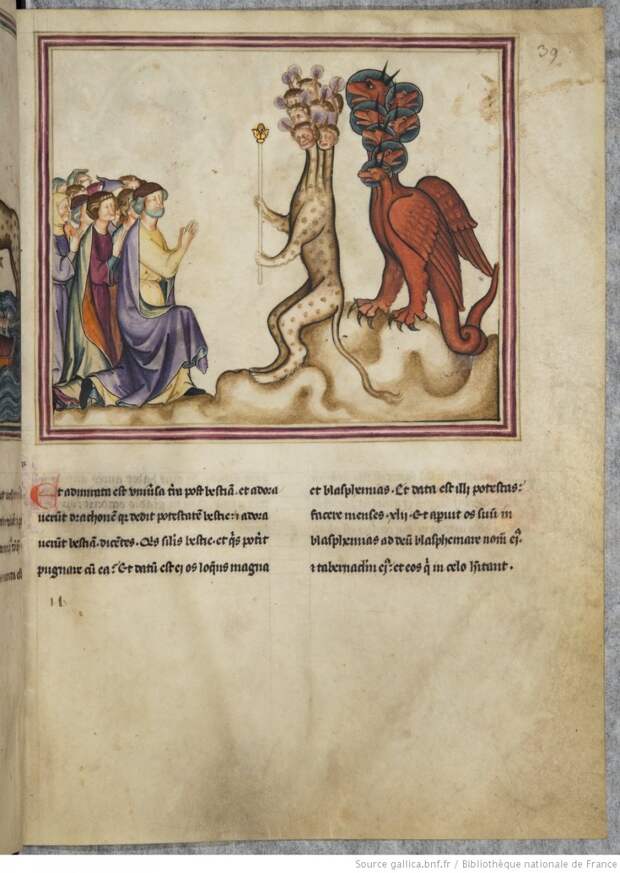 39
Et admirata est uniu̅sa t̅ra post bestiā. et adora
uerūt drachonē q̇ dedit potestatē bestie ⁊ adora
uerūt bestiā. dicētes. Q̇s sil̅is bestie. et q̇s pot̅it
pugnare cū ea? Et datū est ei os loq̅ns magna
et blasphemias. Et data est illi potestas
facere menses .xlii. Et apuit os suū in
blasphemias ad deū blasphemare nom̅ ei9.
⁊ tabernac̅lm ei9. et eos q̇ in celo h̅itant.
Source gallica.bnf.fr / Bibliothèque nationale de France